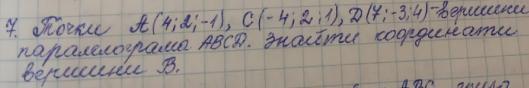 7. Точки A(4;2;-1), C(-4;2;1), D(7;-3;4)-вершини
паралелограма ABCD. Знайти координати
вершини B.